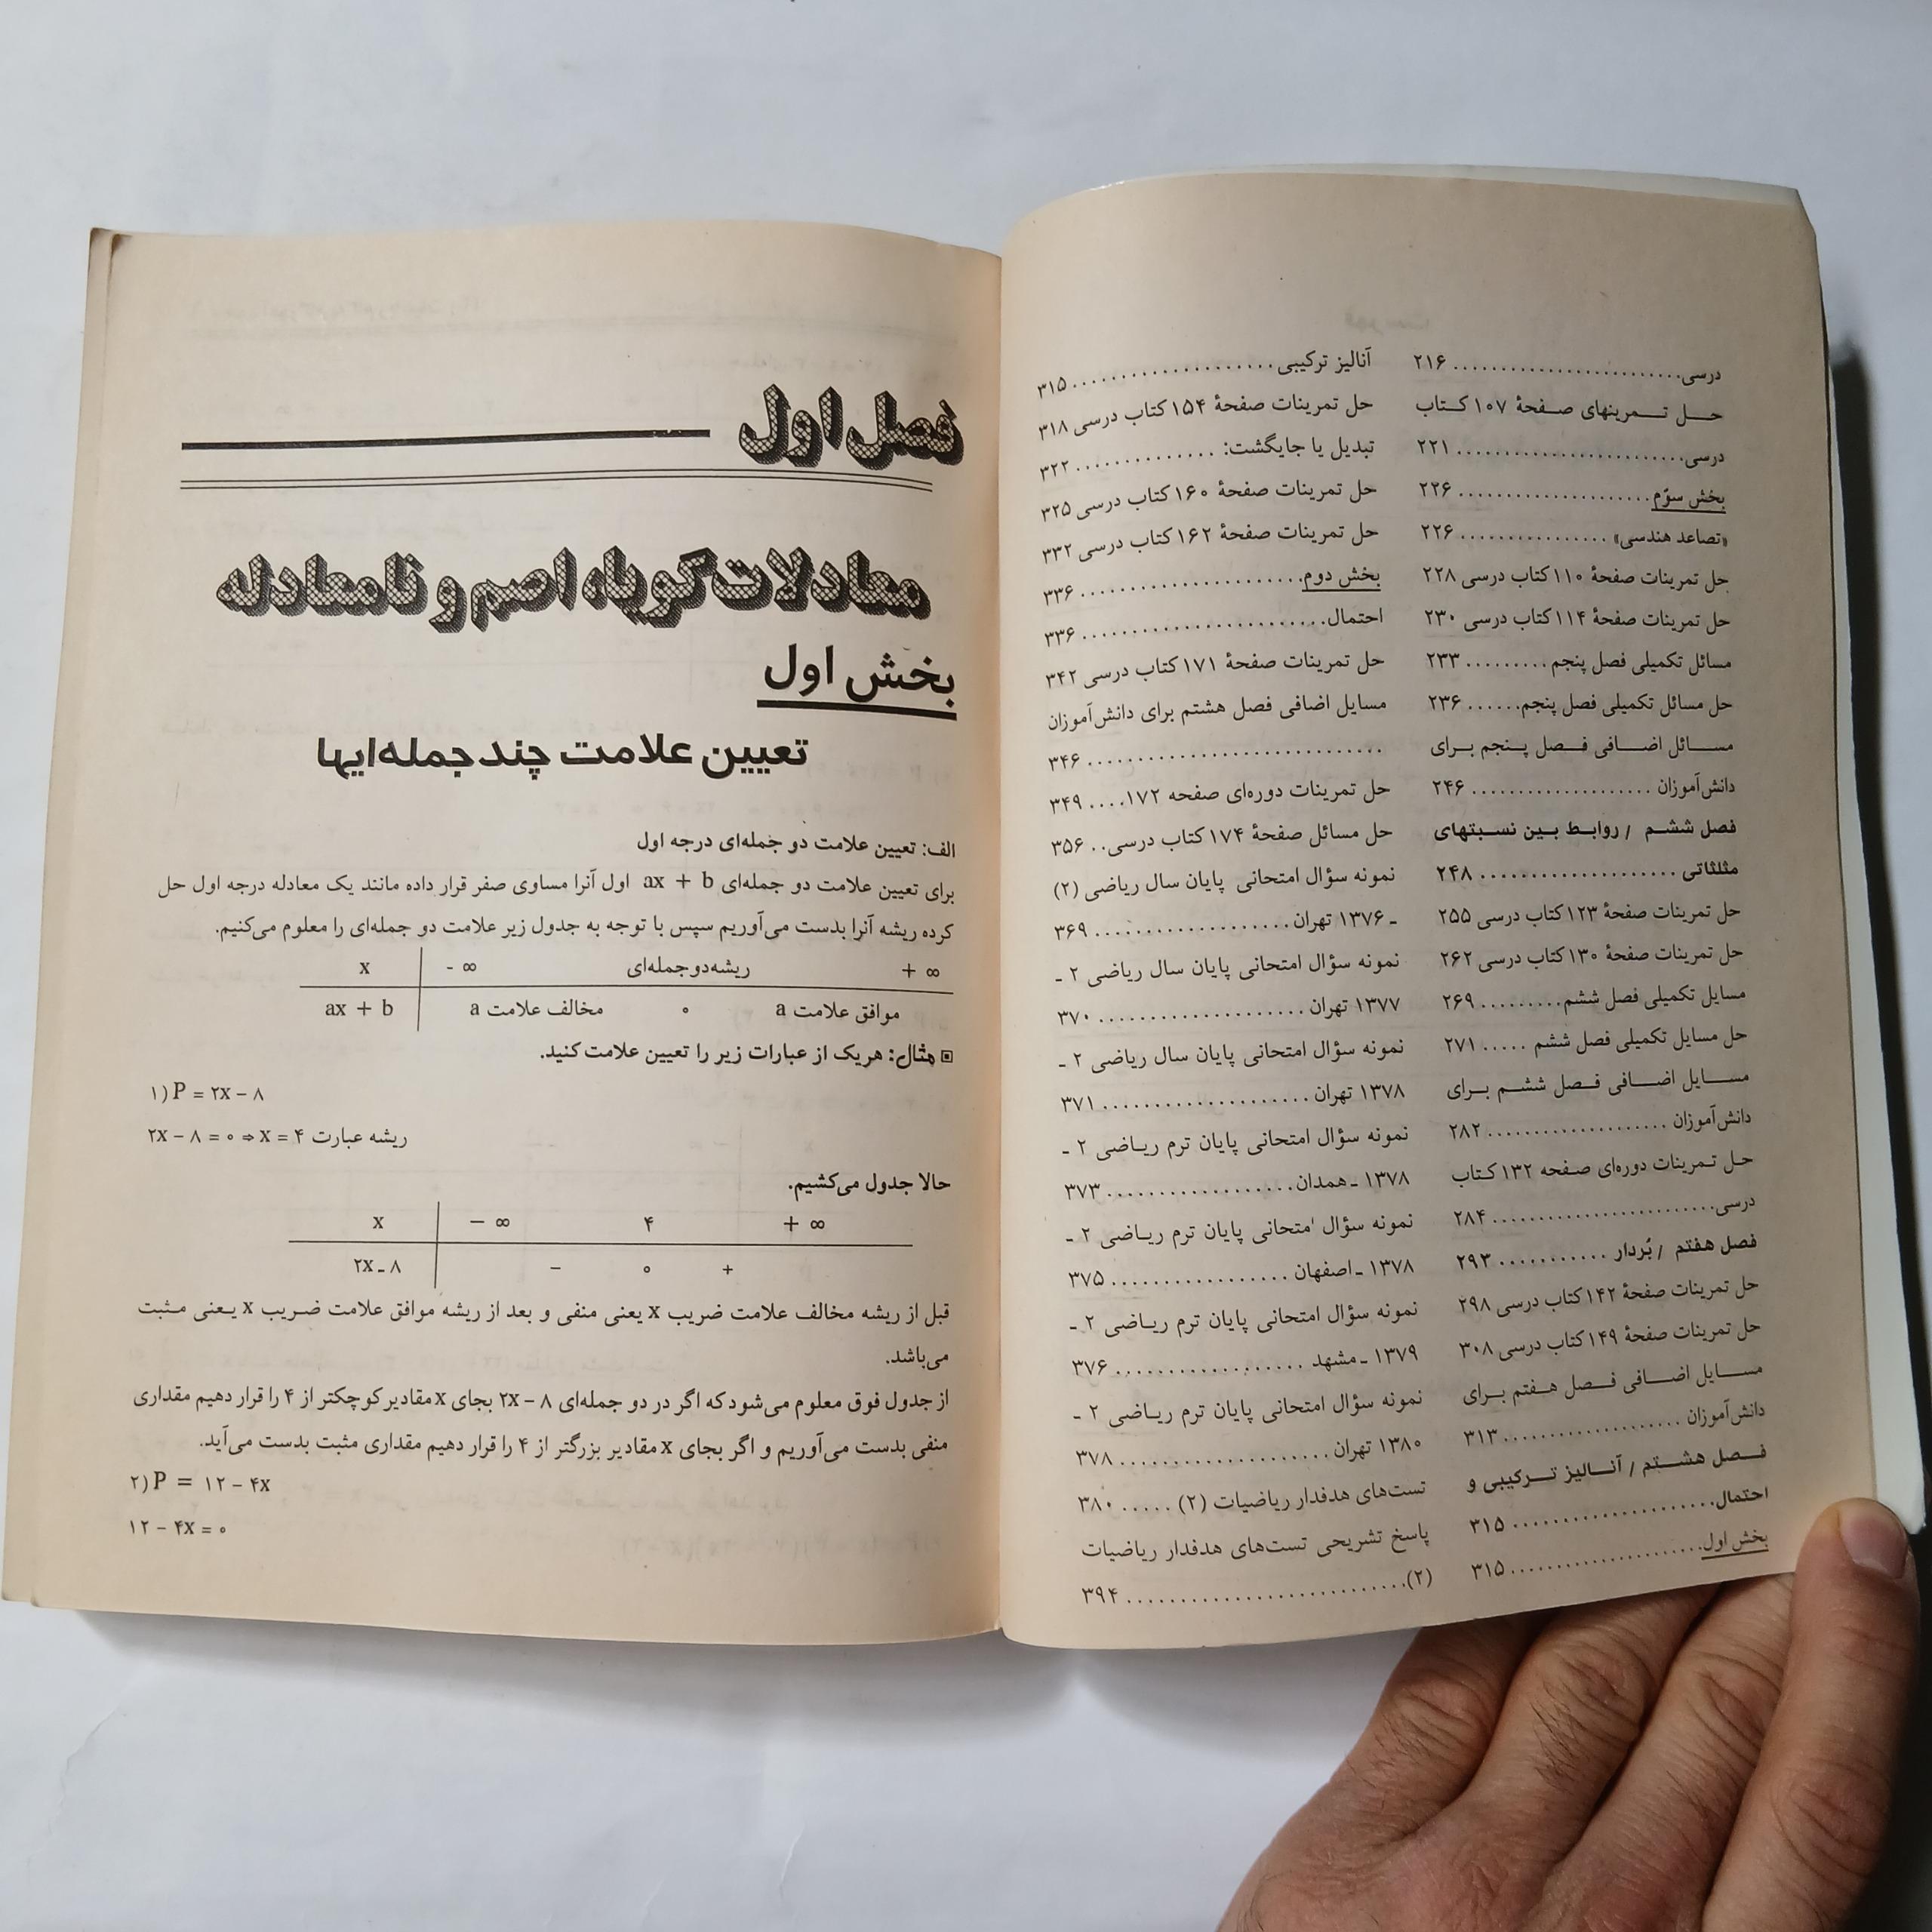 درسی......................... ۲۱۶
حـــل تـــمرینهای صـفحهٔ ۱۰۷ کـتاب
درسی......................... ۲۲۱
بخش سوّم..................... ۲۲۶
«تصاعد هندسی» ................ ۲۲۶
حل تمرینات صفحهٔ ۱۱۰ کتاب درسی ۲۲۸
حل تمرینات صفحهٔ ۱۱۴ کتاب درسی ۲۳۰
مسائل تکمیلی فصل پنجم ......... ۲۳۳
حل مسائل تکمیلی فصل پنجم...... ۲۳۶
مســـائل اضـــافی فــصل پـنجم بـرای
دانش‌آموزان ................... ۲۴۶
فصل ششـم / روابـط بـین نسـبتهای
مثلثاتی ..................... ۲۴۸
حل تمرینات صفحهٔ ۱۲۳ کتاب درسی ۲۵۵
حل تمرینات صفحهٔ ۱۳۰ کتاب درسی ۲۶۲
مسایل تکمیلی فصل ششم......... ۲۶۹
حل مسایل تکمیلی فصل ششم ..... ۲۷۱
مســـایل اضـــافی فــصل ششــم بـرای
دانش‌آموزان ................... ۲۸۲
حـل تـمرینات دوره‌ای صـفحه ۱۳۲ کـتاب
درسی......................... ۲۸۴
فصل هفتم / بُردار ............ ۲۹۳
حل تمرینات صفحهٔ ۱۴۲ کتاب درسی ۲۹۸
حل تمرینات صفحهٔ ۱۴۹ کتاب درسی ۳۰۸
مســـایل اضـــافی فــصل هـفتم بـرای
دانش‌آموزان ................... ۳۱۳
فــصل هشــتم / آنــالیز تــرکیبی و
احتمال....................... ۳۱۵
بخش اول..................... ۳۱۵
آنالیز ترکیبی .................... ۳۱۵
حل تمرینات صفحهٔ ۱۵۴ کتاب درسی ۳۱۸
تبدیل یا جایگشت: .............. ۳۲۲
حل تمرینات صفحهٔ ۱۶۰ کتاب درسی ۳۲۵
حل تمرینات صفحهٔ ۱۶۲ کتاب درسی ۳۳۲
بخش دوم...................... ۳۳۶
احتمال........................ ۳۳۶
حل تمرینات صفحهٔ ۱۷۱ کتاب درسی ۳۴۲
مسایل اضافی فصل هشتم برای دانش‌آموزان
............................ ۳۴۶
حل تمرینات دوره‌ای صفحه ۱۷۲.... ۳۴۹
حل مسائل صفحهٔ ۱۷۴ کتاب درسی.. ۳۵۶
نمونه سؤال امتحانی پایان سال ریاضی (۲)
ـ ۱۳۷۶ تهران ................... ۳۶۹
نمونه سؤال امتحانی پایان سال ریاضی ۲ ـ
۱۳۷۷ تهران .................... ۳۷۰
نمونه سؤال امتحانی پایان سال ریاضی ۲ ـ
۱۳۷۸ تهران .................... ۳۷۱
نمونه سؤال امتحانی پایان ترم ریـاضی ۲ ـ
۱۳۷۸ ـ همدان .................. ۳۷۳
نمونه سؤال امتحانی پایان ترم ریـاضی ۲ ـ
۱۳۷۸ ـ اصفهان ................. ۳۷۵
نمونه سؤال امتحانی پایان ترم ریـاضی ۲ ـ
۱۳۷۹ ـ مشهد .................. ۳۷۶
نمونه سؤال امتحانی پایان ترم ریـاضی ۲ ـ
۱۳۸۰ تهران .................... ۳۷۸
تست‌های هدفدار ریاضیات (۲) ..... ۳۸۰
پاسخ تشریحی تست‌های هدفدار ریاضیات
(۲)........................... ۳۹۴
فصل اول
معادلات گویا، اصم و نامعادله
بخش اول
تعیین علامت چند جمله‌ایها
الف: تعیین علامت دو جمله‌ای درجه اول
برای تعیین علامت دو جمله‌ای ax + b اول آنرا مساوی صفر قرار داده مانند یک معادله درجه اول حل
کرده ریشه آنرا بدست می‌آوریم سپس با توجه به جدول زیر علامت دو جمله‌ای را معلوم می‌کنیم.
x - ∞ ریشه‌دوجمله‌ای + ∞
ax + b مخالف علامت a ۰ موافق علامت a
مثال: هریک از عبارات زیر را تعیین علامت کنید.
۱) P = ۲x – ۸
۲x – ۸ = ۰ ⇒ x = ۴ ریشه عبارت
حالا جدول می‌کشیم.
x – ∞ ۴ + ∞
۲x ـ ۸ – ۰ +
قبل از ریشه مخالف علامت ضریب x یعنی منفی و بعد از ریشه موافق علامت ضـریب x یـعنی مـثبت
می‌باشد.
از جدول فوق معلوم می‌شود که اگر در دو جمله‌ای ۲x – ۸ بجای x مقادیر کوچکتر از ۴ را قرار دهیم مقداری
منفی بدست می‌آوریم و اگر بجای x مقادیر بزرگتر از ۴ را قرار دهیم مقداری مثبت بدست می‌آید.
۲) P = ۱۲ – ۴x
۱۲ – ۴x = ۰